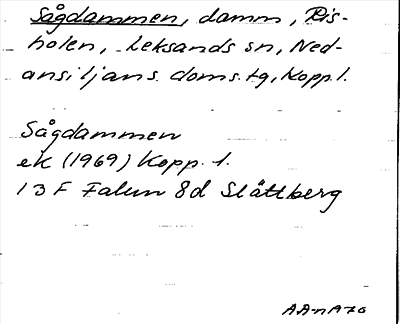 Sågdammen, damm, Ris-
holen, Leksands sn, Ned-
ansiljans doms.tg, Kopp. l.
Sågdammen
ek (1969) Kopp. l.
13 F Falun 8d Slättberg
AAnA70